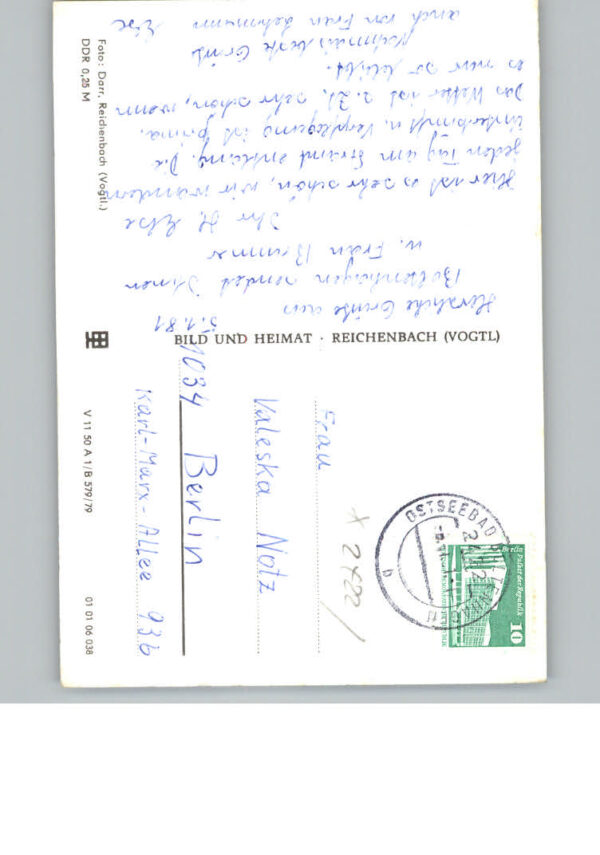 5.1.81
Herzliche Grüße aus
Boltenhagen sendet Ihnen
u. Frau
Ihr Else
Hier ist es sehr schön, wir wandern
jeden Tag am Strand entlang. Die
Unterkunft u. Verpflegung ist prima.
Das Wetter ist z. Zt. sehr schön, wenn
es nur so bleibt.
Nochmals beste Grüße
auch von Frau Lehmann
Else
Foto: Darr, Reichenbach (Vogtl.)
DDR 0,25 M
BILD UND HEIMAT · REICHENBACH (VOGTL)
V 11 50 A 1/B 579/79
01 01 06 038
Frau
Valeska Notz
1034 Berlin
Karl-Marx-Allee 93b
OSTSEEBAD
Berlin Palast der Republik
10